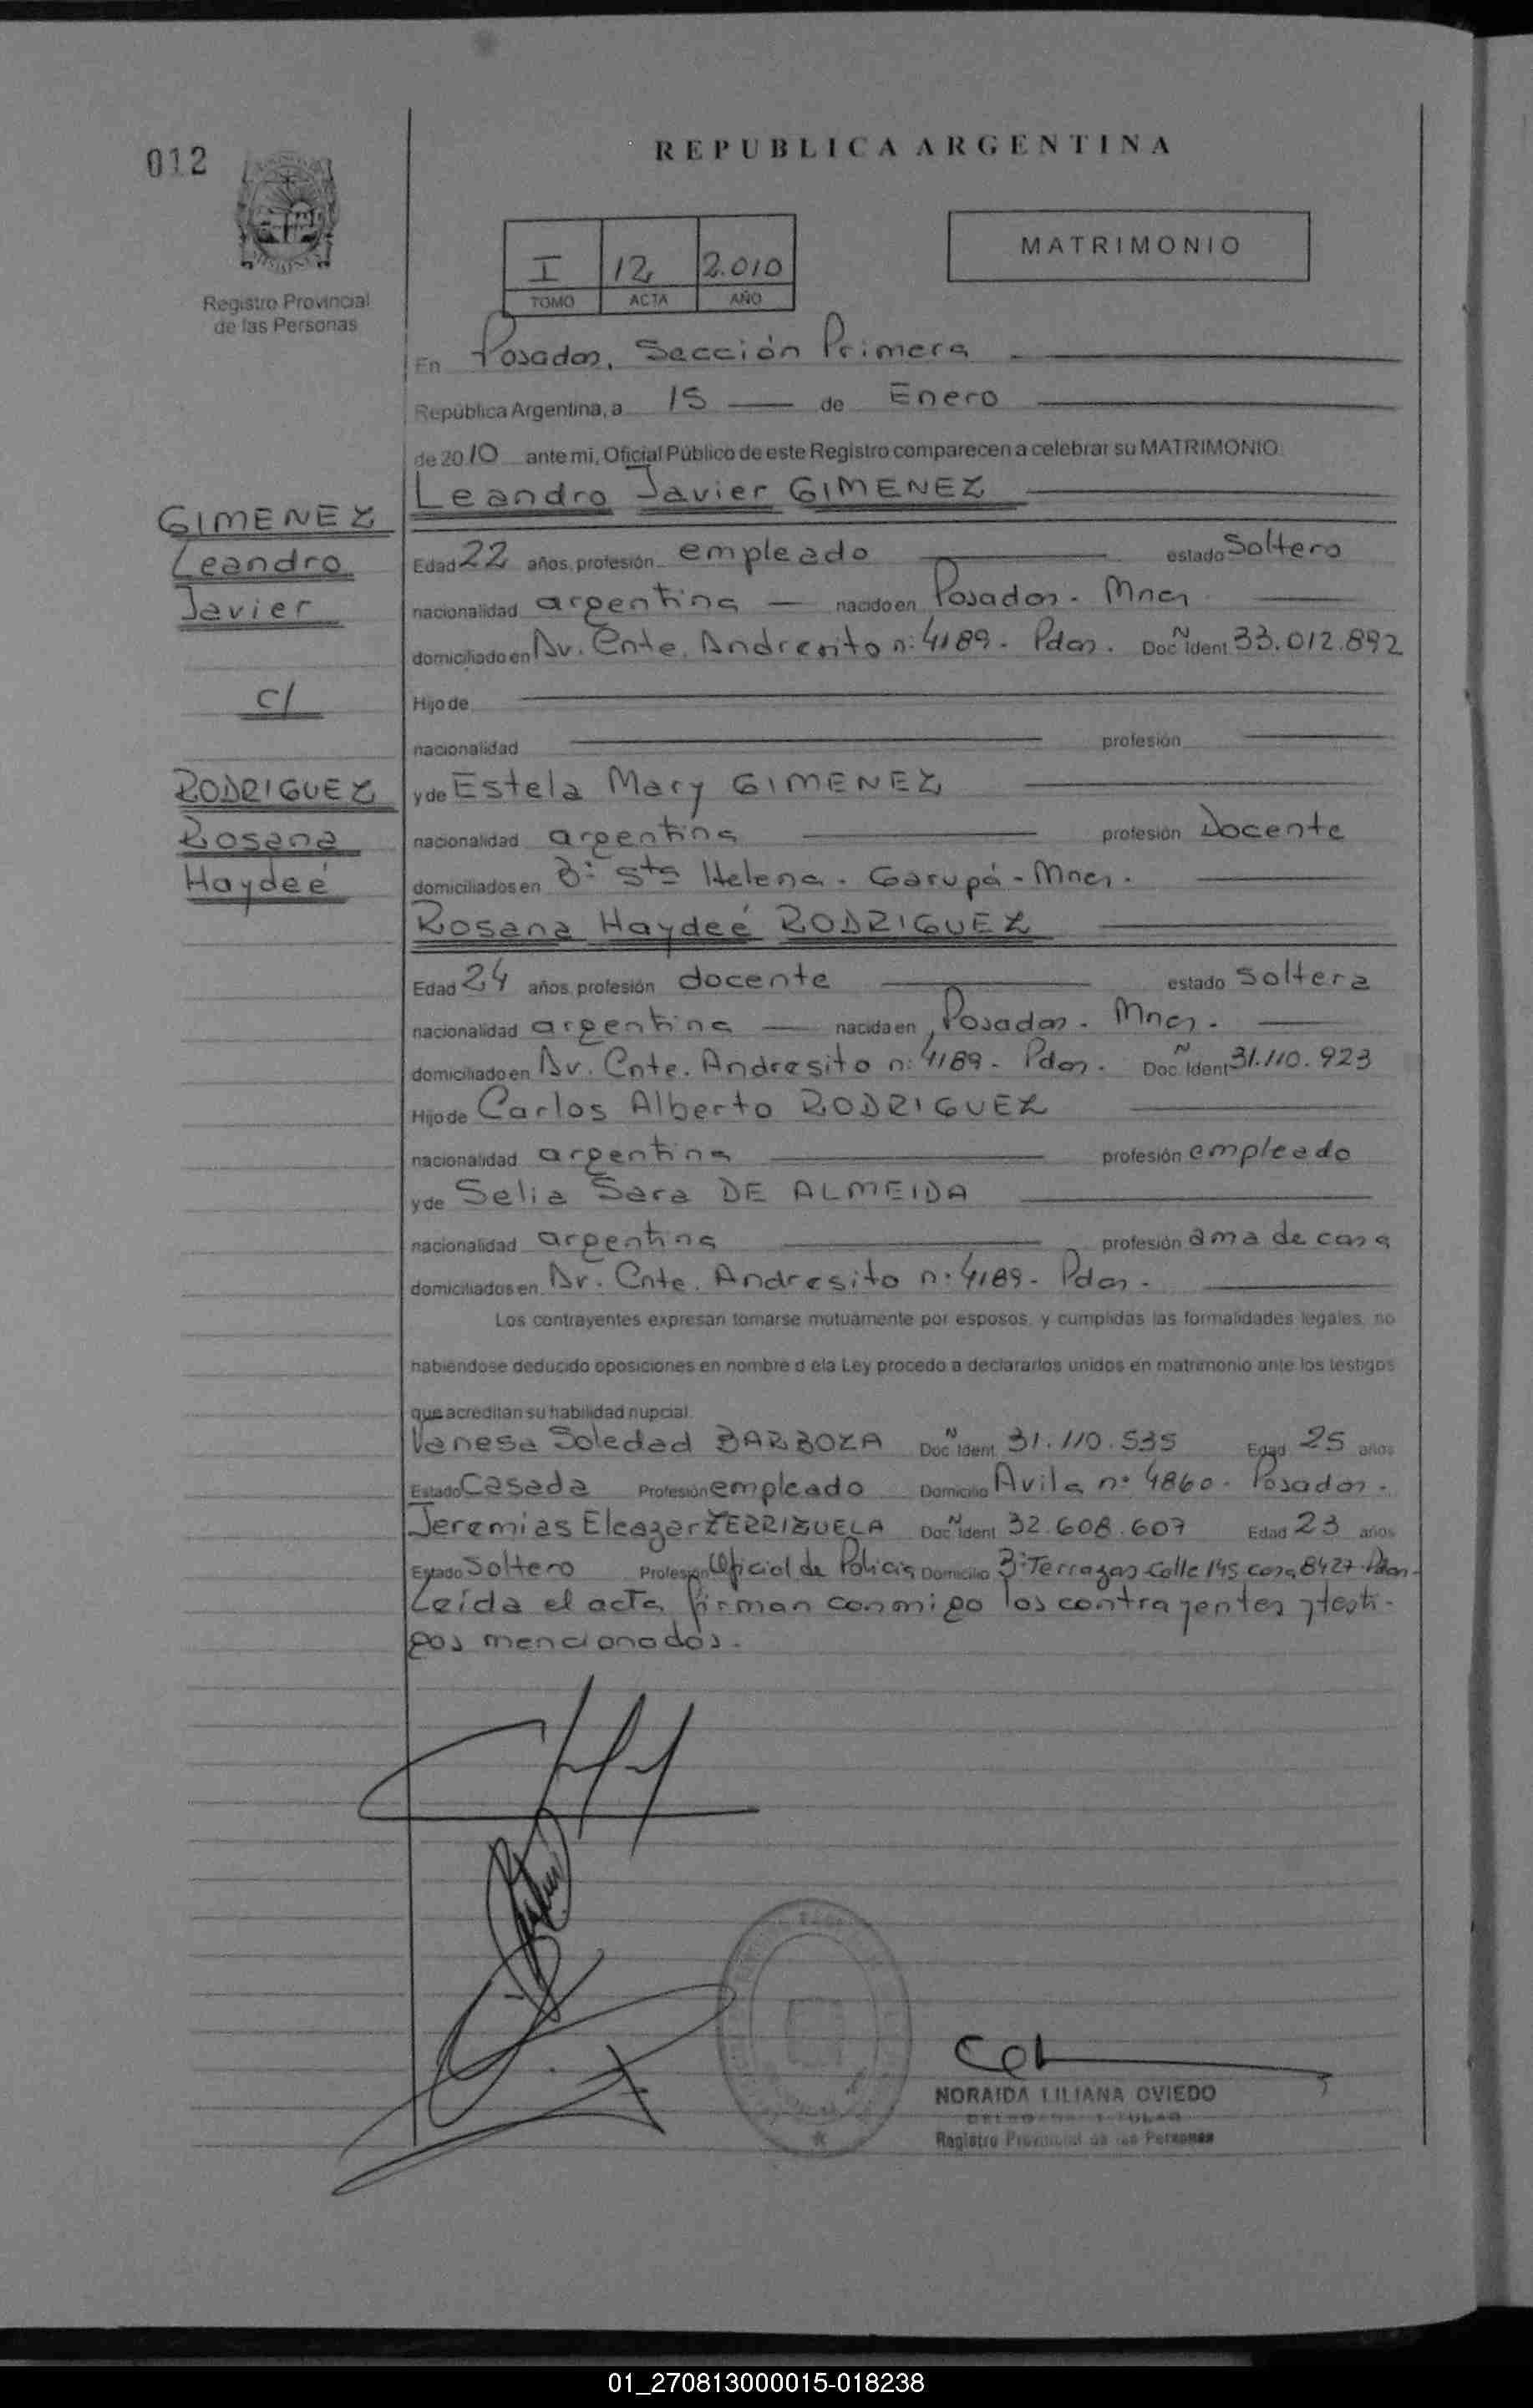 012
REPUBLICA ARGENTINA
MATRIMONIO
I 12 2.010
TOMO ACTA AÑO
Registro Provincial
de las Personas
En Posadas, Sección Primera
República Argentina, a 15 de Enero
de 2010 ante mi, Oficial Público de este Registro comparecen a celebrar su MATRIMONIO
Leandro Javier GIMENEZ
GIMENEZ
Leandro
Javier
c/
RODRIGUEZ
Rosana
Haydeé
Edad 22 años, profesión empleado estado Soltero
nacionalidad argentina nacido en Posadas - Mnes
domiciliado en Av. Cnte. Andresito n: 4189 - Pdas. Doc. Ident N 33.012.892
Hijo de
nacionalidad profesión
y de Estela Mary GIMENEZ
nacionalidad argentina profesión Docente
domiciliados en B: Sta Helena - Garupá - Mnes.
Rosana Haydeé RODRIGUEZ
Edad 24 años, profesión docente estado soltera
nacionalidad argentina nacida en Posadas - Mnes.
domiciliado en Av. Cnte. Andresito n: 4189 - Pdas. Doc. Ident N 31.110.923
Hijo de Carlos Alberto RODRIGUEZ
nacionalidad argentina profesión empleado
y de Selia Sara DE ALMEIDA
nacionalidad argentina profesión ama de casa
domiciliados en Av. Cnte. Andresito n: 4189 - Pdas -
Los contrayentes expresan tomarse mutuamente por esposos, y cumplidas las formalidades legales, no
habiéndose deducido oposiciones en nombre d ela Ley procedo a declararlos unidos en matrimonio ante los testigos
que acreditan su habilidad nupcial.
Vanesa Soledad BARBOZA Doc. Ident. N 31.110.535 Edad 25 años
Estado Casada Profesión empleado Domicilio Avila n: 4860 - Posadas -
Jeremias Eleazer ZERRIZUELA Doc. Ident N 32.608.607 Edad 23 años
Estado Soltero Profesión Oficial de Policia Domicilio B: Terrazas calle 145 casa 8427 - Pdas -
Leída el acta firman conmigo los contrayentes y testi-
gos mencionados.
NORAIDA LILIANA OVIEDO
Registro Provincial de las Personas
01_270813000015-018238